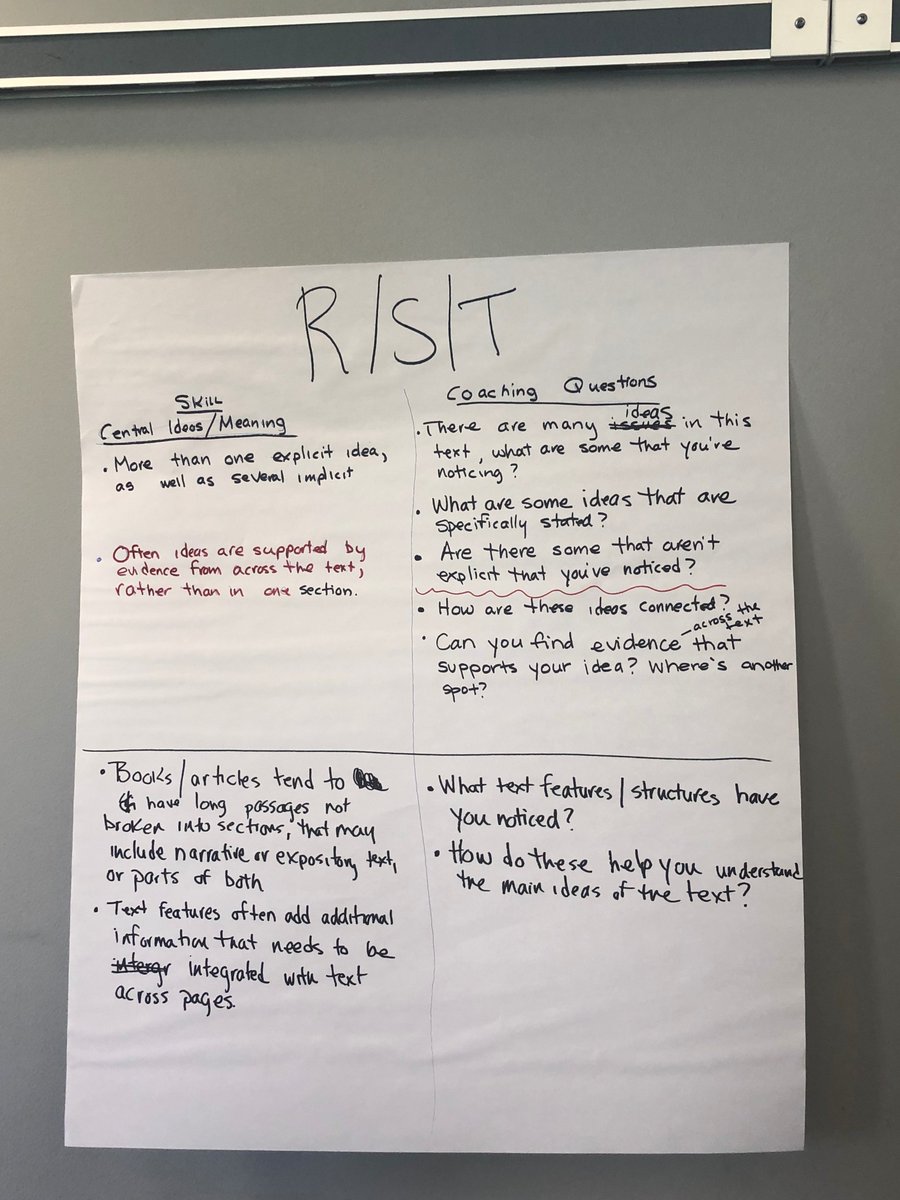 R/S/T
Skill
Central Ideas/Meaning
• More than one explicit idea,
as well as several implicit
• Often ideas are supported by
evidence from across the text,
rather than in one section.
Coaching Questions
ideas
• There are many issues in this
text, what are some that you've
noticing?
• What are some ideas that are
specifically stated?
• Are there some that aren't
explicit that you've noticed?
• How are these ideas connected?
- across the
text
• Can you find evidence that
supports your idea? Where's another
spot?
• Books/articles tend to
have long passages not
broken into sections, that may
include narrative or expository text,
or parts of both
• Text features often add additional
information that needs to be
intergr integrated with text
across pages.
• What text features/structures have
you noticed?
• How do these help you understand
the main ideas of the text?